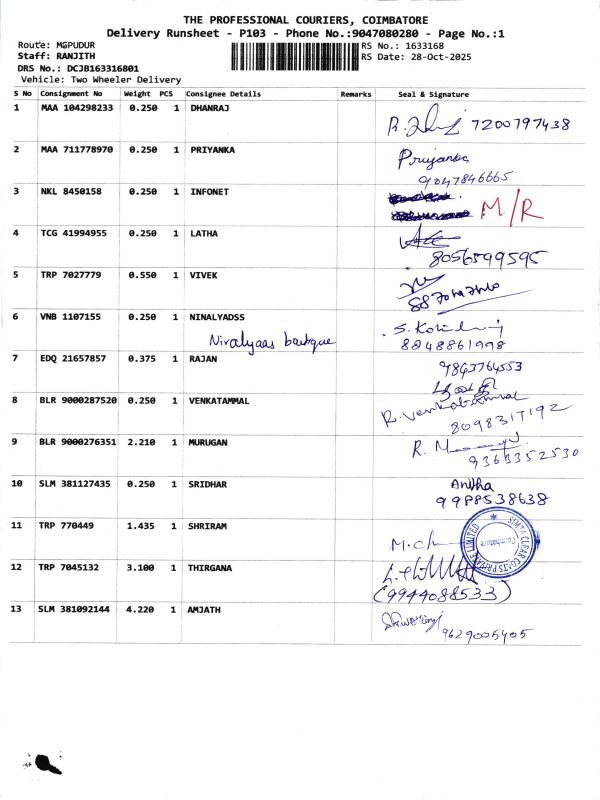 THE PROFESSIONAL COURIERS, COIMBATORE
Delivery Runsheet - P103 - Phone No.:9047080280 - Page No.:1
Route: MGPUDUR RS No.: 1633168
Staff: RANJITH RS Date: 28-Oct-2025
DRS No.: DCJB163316801
Vehicle: Two Wheeler Delivery
S No Consignment No Weight PCS Consignee Details Remarks Seal & Signature
1 MAA 104298233 0.250 1 DHANRAJ
7200797438
2 MAA 711778970 0.250 1 PRIYANKA Priyanka
9047846665
3 NKL 8450158 0.250 1 INFONET M/R
4 TCG 41994955 0.250 1 LATHA
8056599595
5 TRP 7027779 0.550 1 VIVEK
6 VNB 1107155 0.250 1 NINALYADSS
Niralyaas boutique 8248861998
7 EDQ 21657857 0.375 1 RAJAN 9843764553
8 BLR 9000287520 0.250 1 VENKATAMMAL R. Venkatammal
8098317192
9 BLR 9000276351 2.210 1 MURUGAN
9363352530
10 SLM 381127435 0.250 1 SRIDHAR Anitha
9988538638
11 TRP 770449 1.435 1 SHRIRAM
SIMTA CLEAR COATS PRIVATE LIMITED
Coimbatore
12 TRP 7045132 3.100 1 THIRGANA
(9944088533)
13 SLM 381092144 4.220 1 AMJATH
9629005405